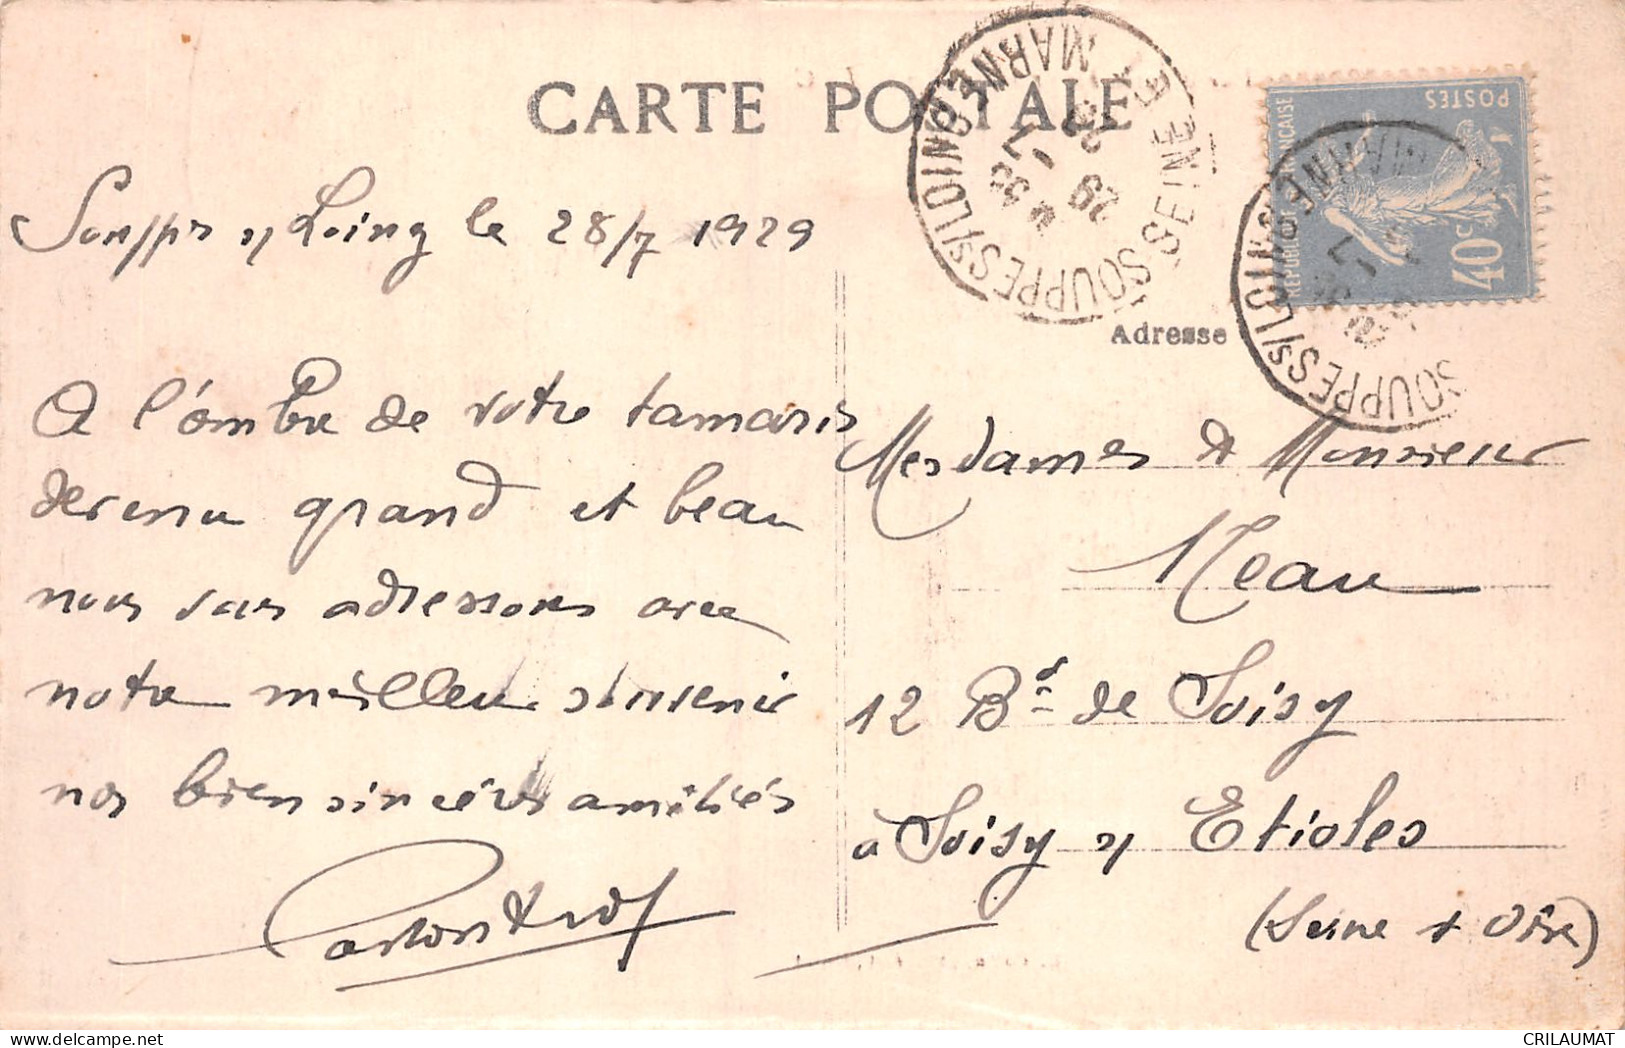 CARTE POSTALE
SOUPPES S/ LOING
SEINE ET MARNE
29
POSTES
RÉPUBLIQUE FRANÇAISE
40c
SOUPPES S/ LOING
MARNE
Adresse
Souppes s/ Loing le 28/7 1929
A l'ombre de votre tamaris
devenu grand et beau
nous vous adressons avec
notre meilleur souvenir
nos bien sincères amitiés
Mesdames & Monsieur
12 Bd de Soisy
à Soisy s/ Etioles
(Seine & Oise)
CRILAUMAT